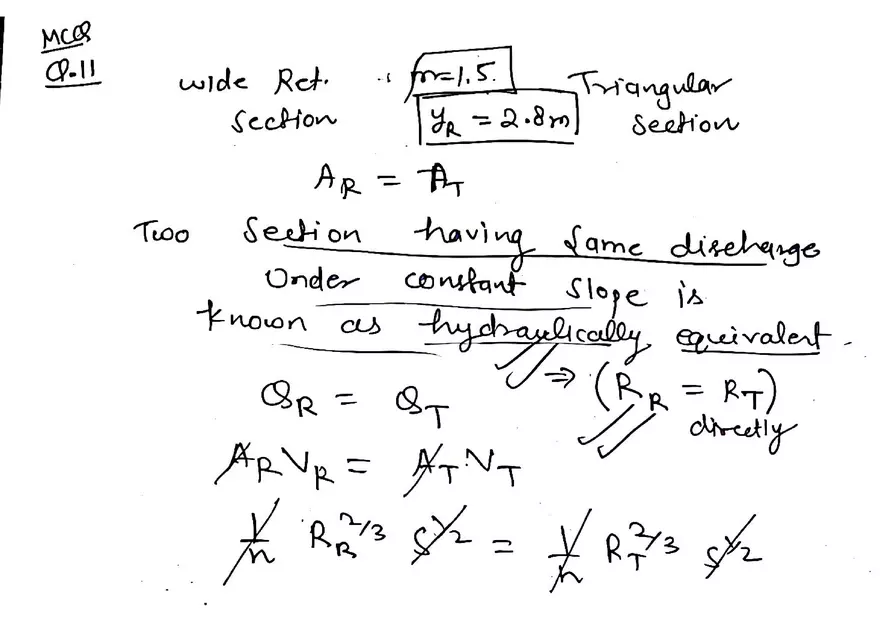 MCQ
Q-11
wide Ret. m=1.5. Triangular
Section y_R = 2.8m Section
A_R = A_T
Two Section having Same discharge
Under constant slope is
known as hydraulically equivalent.
⇒ (R_R = R_T)
Q_R = Q_T directly
A_R V_R = A_T V_T
1/n R_R^2/3 S^1/2 = 1/n R_T^2/3 S^1/2